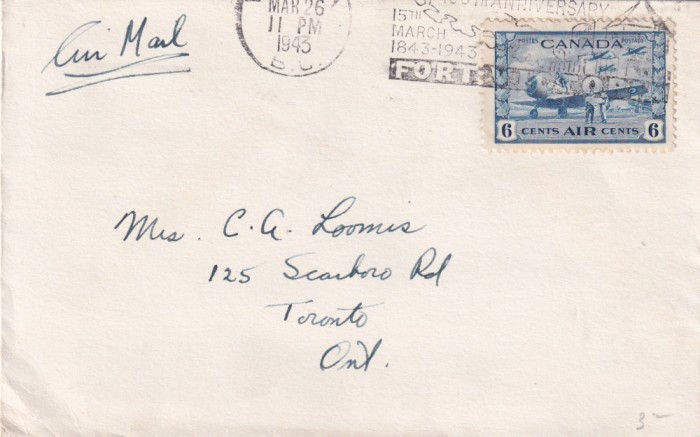 Air Mail
MAR 26
11 PM
1943
B.C.
ANNIVERSARY
15TH
MARCH
1843-1943
FORT
POSTES POSTAGE
CANADA
6 CENTS AIR CENTS 6
Mrs. C. A. Loomis
125 Scarboro Rd
Toronto
Ont.
3–